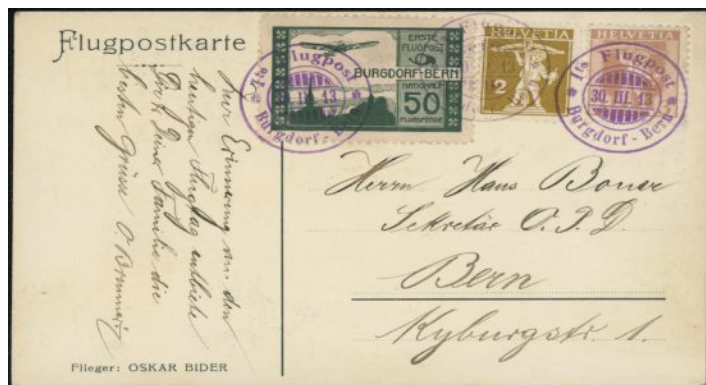 Flugpostkarte
Zur Erinnerung an den
heutigen Flugtag entbiete
Dir & Deiner Familie die
besten Grüsse O. Brunner
Flieger: OSKAR BIDER
ERSTE
FLUGPOST
BURGDORF-BERN
NATIONALE
50
FLUGSPENDE
HELVETIA
2
HELVETIA
1te Flugpost
III. 13
Burgdorf - Bern
1te Flugpost
30. III. 13
Burgdorf - Bern
Herrn Hans
Sekretär O. P. D.
Bern
Kyburgstr. 1.